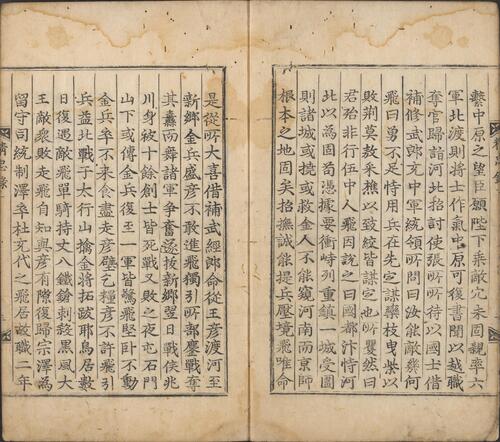 繫中原之望臣願陛下乘敵穴未固親率六
軍北渡則將士作氣中原可復書聞以越職
奪官歸詣河北招討使張所所待以國士借
補修武郎充中軍統領所問曰汝能敵幾何
飛曰勇不足恃用兵在先定謀欒枝曳柴以
敗荊莫敖采樵以致絞皆謀定也所矍然曰
君殆非行伍中人飛因說之曰國都汴恃河
北以為固苟憑據要衝峙列重鎮一城受圍
則諸城或撓或救金人不能窺河南而京師
根本之地固矣招撫誠能提兵壓境飛唯命
是從所大喜借補武經郎命從王彥渡河至
新鄉金兵盛彥不敢進飛獨引所部鏖戰奪
其纛而舞諸軍爭奮遂拔新鄉翌日戰侯兆
川身被十餘創士皆死戰又敗之夜屯石門
山下或傳金兵復至一軍皆驚飛堅臥不動
金兵卒不來食盡走彥壁乞糧彥不許飛引
兵益北戰于太行山擒金將拓跋耶烏居數
日復遇敵飛單騎持丈八鐵鎗刺殺黑風大
王敵衆敗走飛自知與彥有隙復歸宗澤為
留守司統制澤卒杜充代之飛居故職二年